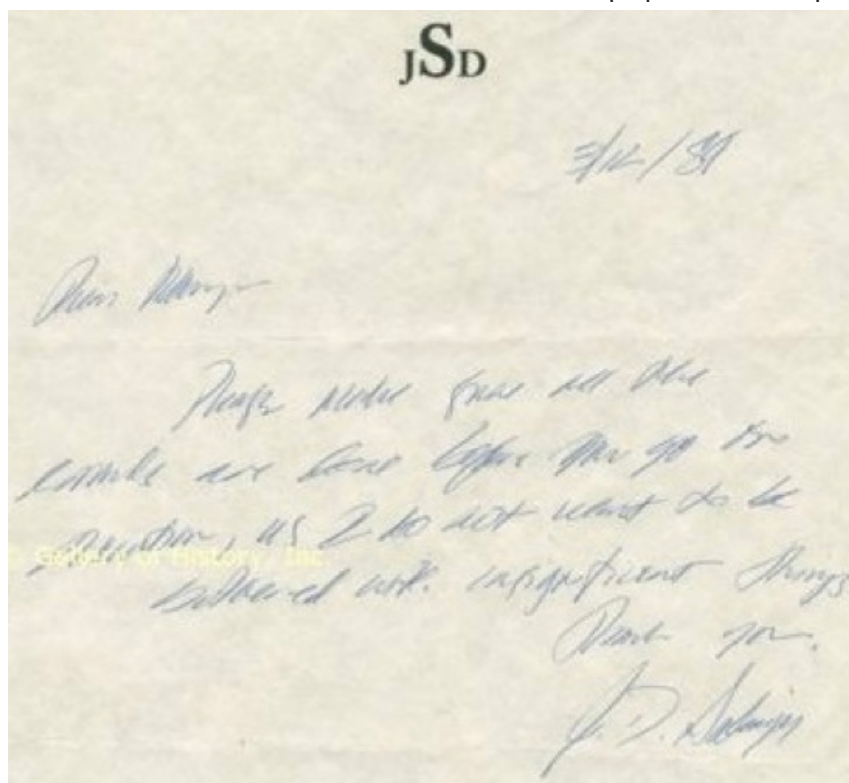 JSD
3/12/89
Dear Mary
Please make sure all the
errands are done before you go on
vacation, as I do not want to be
bothered with insignificant things
Thank you.
J. D. Salinger
© Gallery of History, Inc.